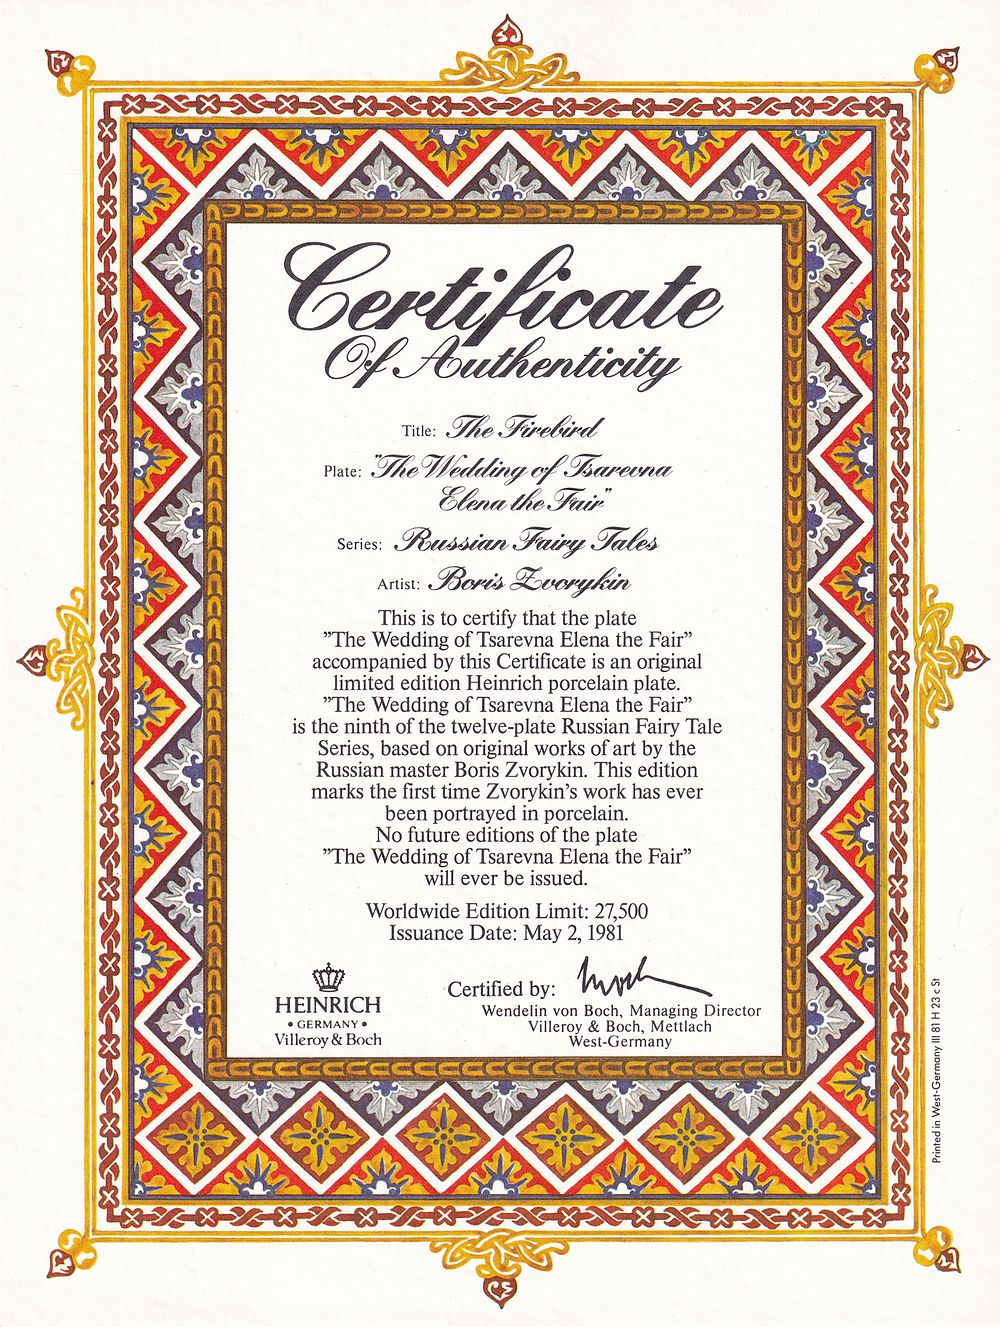 Certificate
Of Authenticity
Title: The Firebird
Plate: "The Wedding of Tsarevna
Elena the Fair"
Series: Russian Fairy Tales
Artist: Boris Zvorykin
This is to certify that the plate
”The Wedding of Tsarevna Elena the Fair”
accompanied by this Certificate is an original
limited edition Heinrich porcelain plate.
”The Wedding of Tsarevna Elena the Fair”
is the ninth of the twelve-plate Russian Fairy Tale
Series, based on original works of art by the
Russian master Boris Zvorykin. This edition
marks the first time Zvorykin’s work has ever
been portrayed in porcelain.
No future editions of the plate
”The Wedding of Tsarevna Elena the Fair”
will ever be issued.
Worldwide Edition Limit: 27,500
Issuance Date: May 2, 1981
HEINRICH
• GERMANY •
Villeroy & Boch
Certified by:
Wendelin von Boch, Managing Director
Villeroy & Boch, Mettlach
West-Germany
Printed in West-Germany III 81 H 23 c St